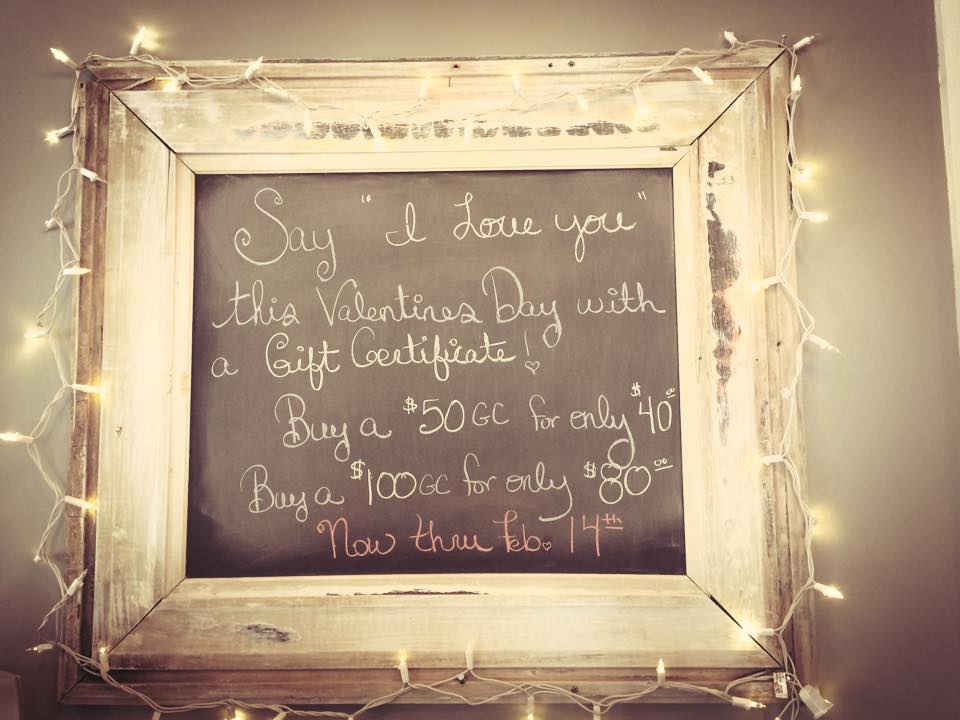 Say "I Love you"
this Valentines Day with
a Gift Certificate! ♡
Buy a $50 GC for only $40.00
Buy a $100 GC for only $80.00
Now thru Feb. 14th